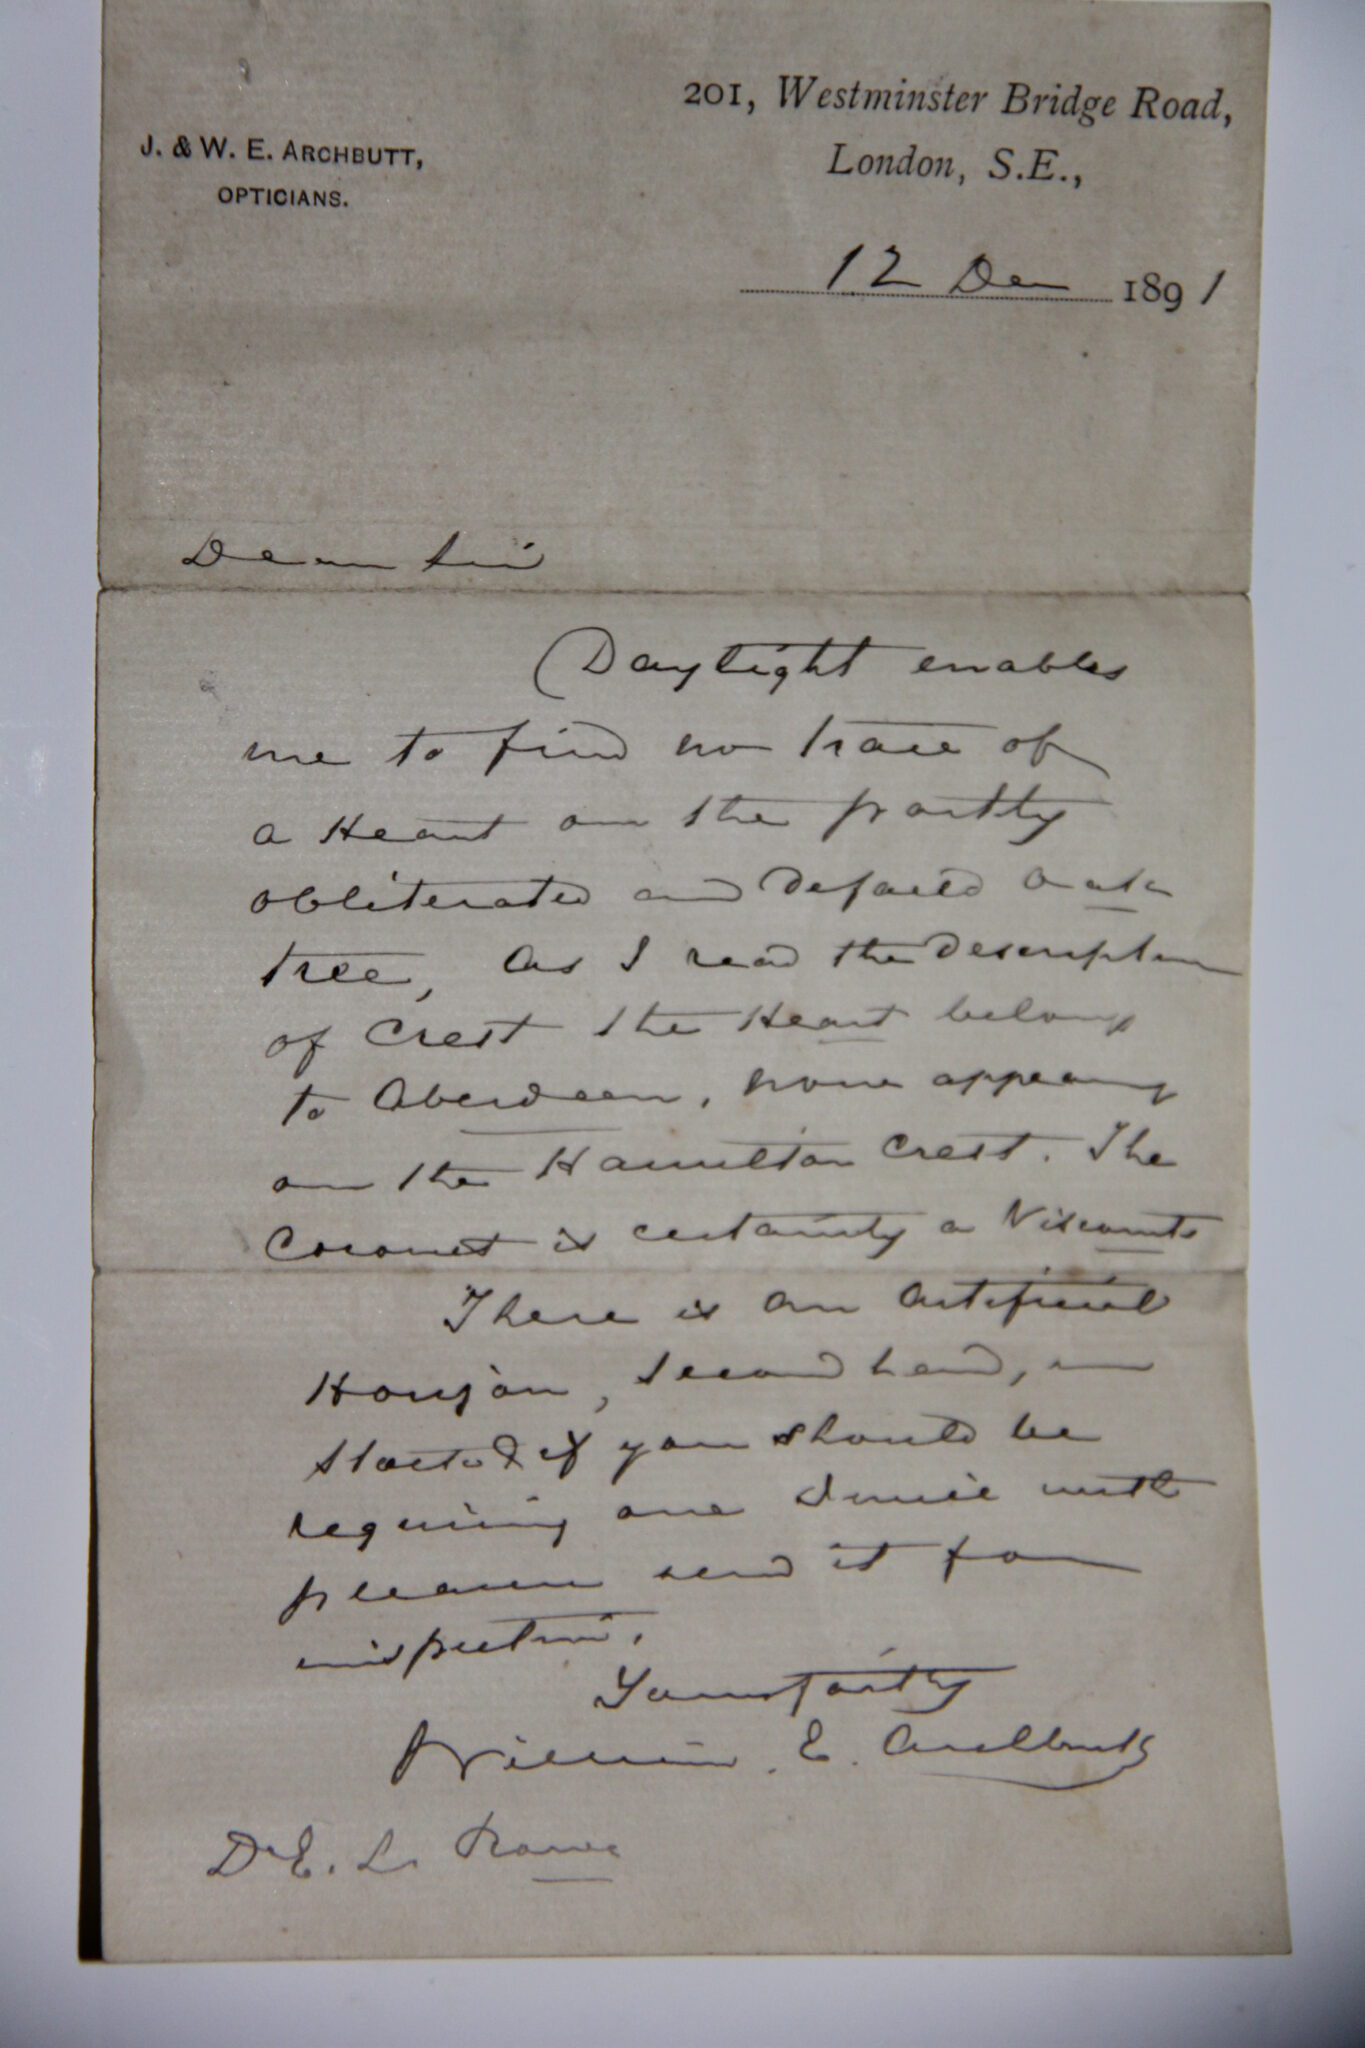 201, Westminster Bridge Road,
London, S.E.,
J. & W. E. ARCHBUTT,
OPTICIANS.
12 Dec 1891
Dear Sir
Daylight enables
me to find no trace of
a Heart on the partly
obliterated and defaced oak
tree, as I read the description
of Crest the Heart belongs
to Aberdeen, none appearing
on the Hamilton Crest. The
Coronet is certainly a Viscounts
There is an artificial
Horizon, second hand, in
stock & if you should be
requiring one I will with
pleasure send it for
inspection.
Yours faithly
William. E. Archbutt
Dr E. L.